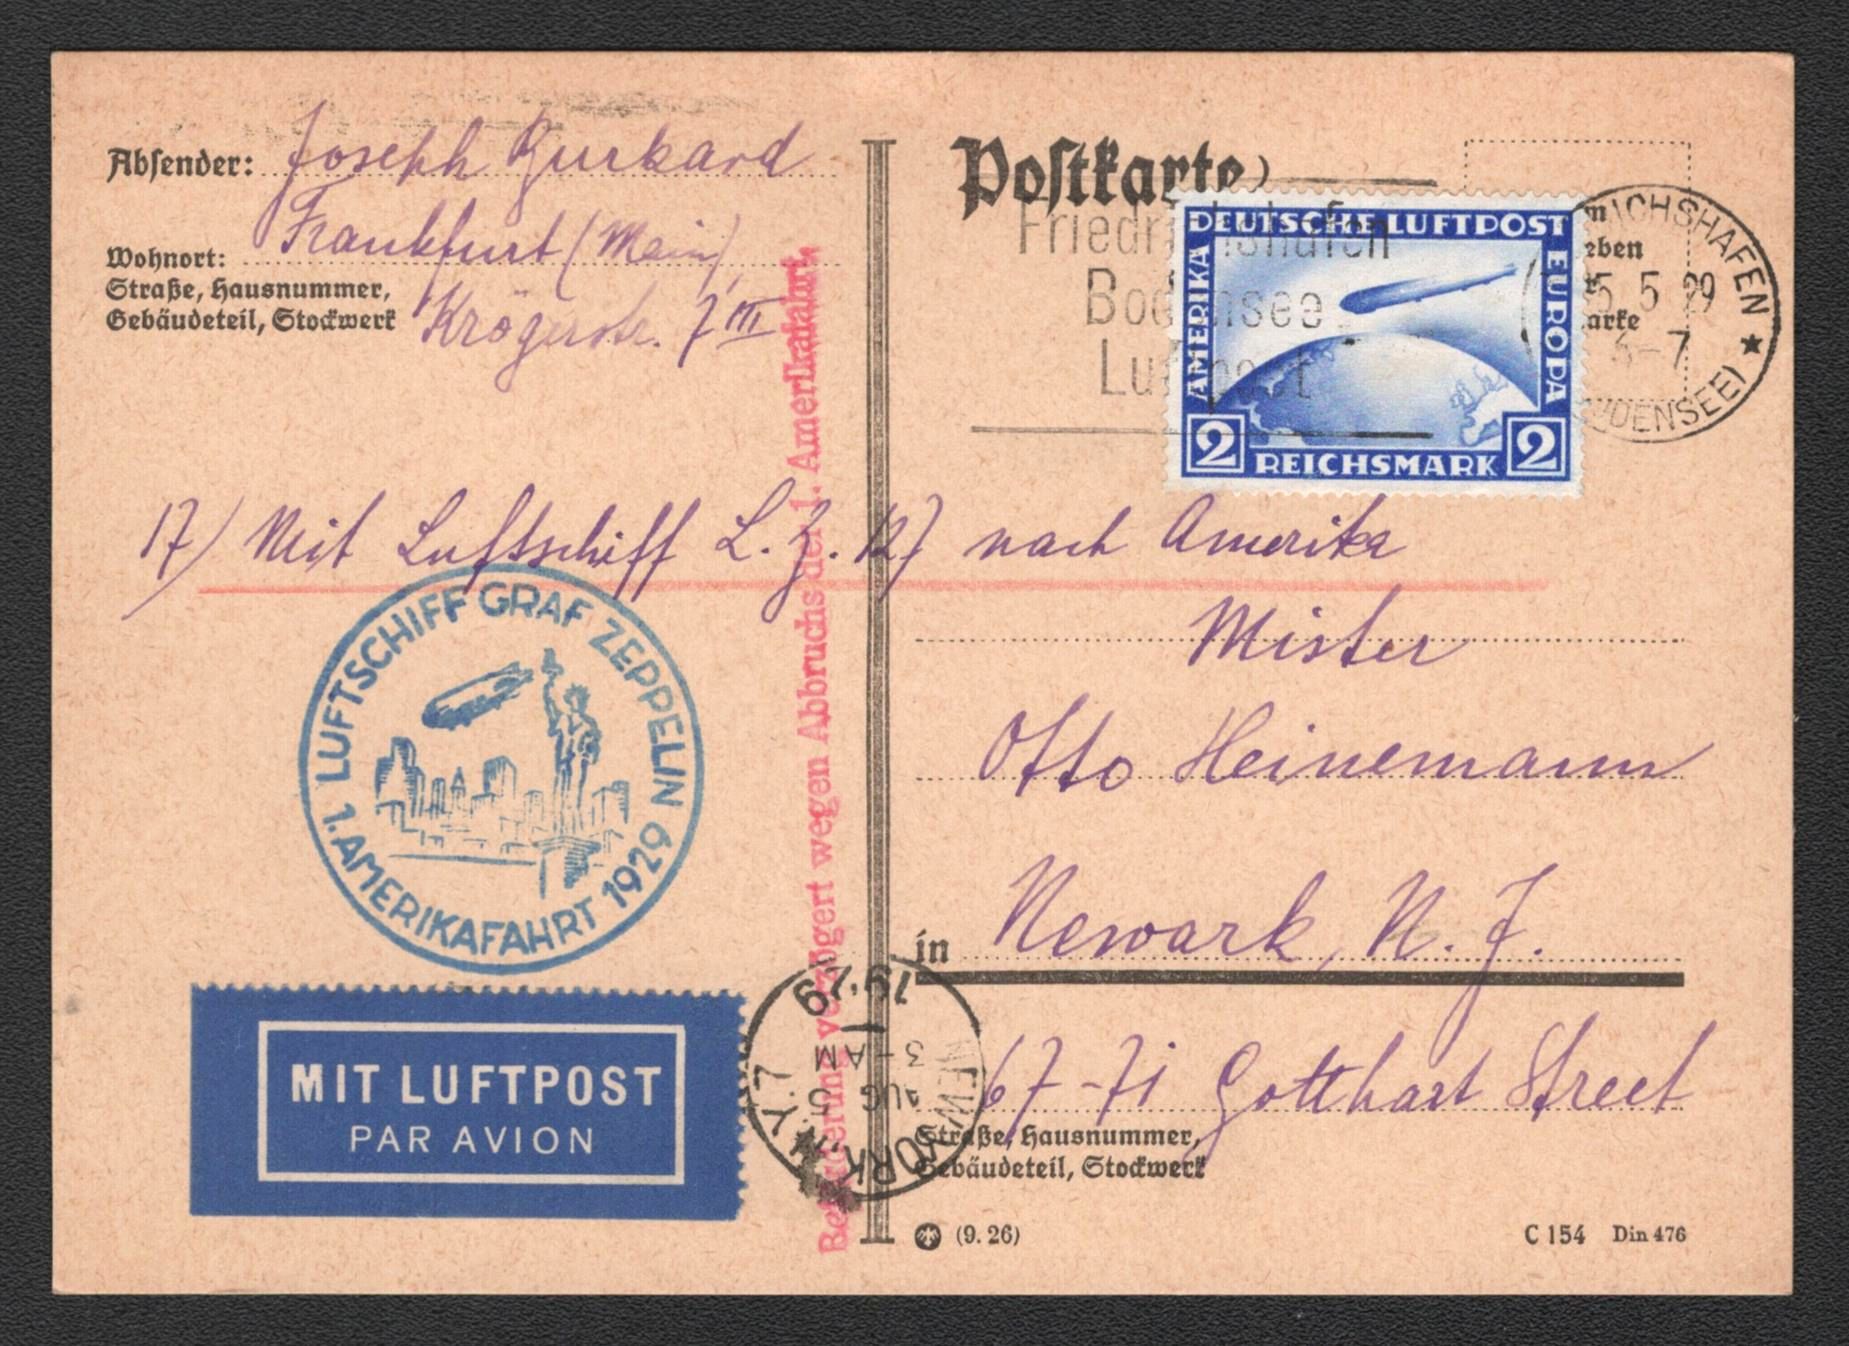 Absender: Joseph Burkard
Wohnort: Frankfurt (Main),
Straße, Hausnummer,
Gebäudeteil, Stockwerk Krögerstr. 7 III
Postkarte
Friedrichshafen
Bodensee
Luftpost
DEUTSCHE LUFTPOST
AMERIKA
EUROPA
2 REICHSMARK 2
5 29
BODENSEE)
17) Mit Luftschiff L. Z. 127 nach Amerika
Beförderung verzögert wegen Abbruchs der 1. Amerikafahrt
LUFTSCHIFF GRAF ZEPPELIN
1. AMERIKAFAHRT 1929
Mister
Otto Heinemann
in Newark, N. J.
67-71 Gotthart Street
Straße, Hausnummer,
Gebäudeteil, Stockwerk
MIT LUFTPOST
PAR AVION
NEW YORK, N.Y. 7
AUG 5
3-AM
1929
(9. 26)
C 154 Din 476